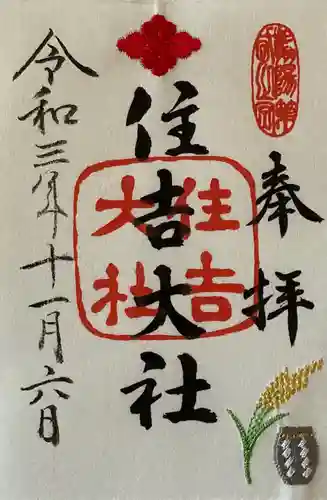 奉拝
住吉大社
住吉大社
令和三年十一月六日